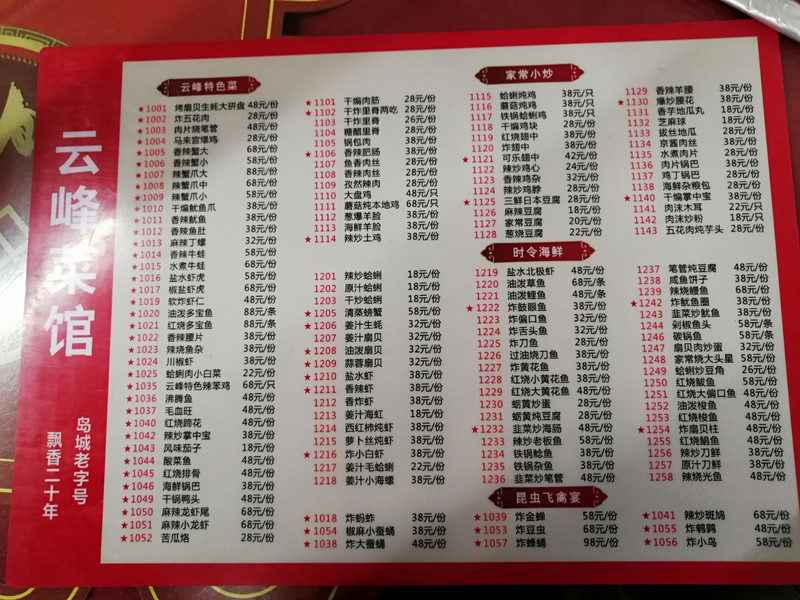 云峰菜馆
岛城老字号
飘香二十年
云峰特色菜
★1001 烤扇贝生蚝大拼盘 48元/份
★1002 炸五花肉 28元/份
★1003 肉片烧笔管 48元/份
★1004 马来宫爆鸡 28元/份
★1005 香辣蟹大 68元/份
★1006 香辣蟹小 58元/份
★1007 辣蟹爪大 88元/份
★1008 辣蟹爪中 68元/份
★1009 辣蟹爪小 58元/份
★1010 干煸鱿鱼爪 38元/份
★1011 香辣鱿鱼 38元/份
★1012 香辣鱼肚 38元/份
★1013 麻辣丁螺 32元/份
★1014 香辣牛蛙 58元/份
★1015 水煮牛蛙 68元/份
★1016 盐水虾虎 58元/份
★1017 椒盐虾虎 68元/份
★1019 软炸虾仁 48元/份
★1020 油泼多宝鱼 88元/条
★1021 红烧多宝鱼 88元/条
★1022 香辣腰片 38元/份
★1023 辣烧鱼杂 38元/份
★1024 川椒虾 38元/份
★1025 蛤蜊肉小白菜 22元/份
★1035 云峰特色辣笨鸡 68元/只
★1036 沸腾鱼 48元/份
★1037 毛血旺 48元/份
★1040 红烧蹄花 48元/份
★1042 辣炒掌中宝 38元/份
★1043 风味茄子 18元/份
★1044 酸菜鱼 48元/份
★1045 红烧排骨 48元/份
★1046 海鲜锅巴 38元/份
★1049 干锅鸭头 48元/份
★1050 麻辣龙虾尾 68元/份
★1051 麻辣小龙虾 68元/份
★1052 苦瓜烙 28元/份
★1101 干煸肉筋 28元/份
★1102 干炸里脊两吃 38元/份
1103 干炸里脊 26元/份
1104 糖醋里脊 28元/份
1105 锅包肉 38元/份
★1106 香辣肥肠 38元/份
1107 鱼香肉丝 28元/份
1108 香辣肉丝 28元/份
1109 孜然辣肉 28元/份
1110 大盘鸡 48元/只
1111 蘑菇炖本地鸡 68元/只
1112 葱爆羊脸 38元/份
1113 海鲜羊脸 38元/份
★1114 辣炒土鸡 38元/份
1201 辣炒蛤蜊 18元/份
1202 原汁蛤蜊 18元/份
1203 干炒蛤蜊 18元/份
★1205 清蒸螃蟹 58元/份
★1206 姜汁生蚝 32元/份
1207 姜汁扇贝 32元/份
★1208 油泼扇贝 32元/份
★1209 蒜蓉扇贝 32元/份
★1210 盐水虾 38元/份
★1211 香辣虾 38元/份
1212 香炸虾 38元/份
1213 姜汁海虹 18元/份
1214 西红柿炖虾 38元/份
1215 萝卜丝炖虾 38元/份
★1216 炸小白虾 38元/份
1217 姜汁毛蛤蜊 22元/份
1218 姜汁小海螺 38元/份
★1018 炸蚂蚱 38元/份
★1054 椒麻小蚕蛹 38元/份
★1038 炸大蚕蛹 48元/份
家常小炒
1115 蛤蜊炖鸡 38元/只
1116 蘑菇炖鸡 38元/只
1117 铁锅蛤蜊鸡 38元/只
1118 干煸鸡块 28元/份
1119 红烧翅中 38元/份
1120 炸翅中 38元/份
★1121 可乐翅中 42元/份
1122 辣炒鸡心 24元/份
1123 香辣鸡杂 32元/份
1124 辣炒鸡脖 28元/份
★1125 三鲜日本豆腐 28元/份
1126 麻辣豆腐 18元/份
1127 家常豆腐 20元/份
1128 葱烧豆腐 22元/份
1129 香辣羊腰 38元/份
★1130 爆炒腰花 38元/份
1131 香芋地瓜丸 18元/份
1132 芝麻球 18元/份
1133 拔丝地瓜 28元/份
1134 京酱肉丝 38元/份
1135 水煮肉片 28元/份
1136 肉片锅巴 38元/份
1137 鸡丁锅巴 28元/份
1138 海鲜杂粮包 28元/份
★1140 干煸掌中宝 38元/份
1141 肉沫木耳 22元/只
1142 肉沫炒粉 18元/只
1143 五花肉炖芋头 28元/份
时令海鲜
1219 盐水北极虾 48元/份
1220 油泼草鱼 68元/条
1221 油泼鲤鱼 48元/条
★1222 炸鼓眼鱼 38元/份
1223 炸偏口鱼 32元/份
1224 炸舌头鱼 32元/份
1225 炸刀鱼 28元/份
1226 过油烧刀鱼 38元/份
1227 炸黄花鱼 38元/份
1228 红烧小黄花鱼 38元/份
1229 红烧大黄花鱼 48元/份
1230 蛎黄炒蛋 28元/份
1231 蛎黄炖豆腐 28元/份
★1232 韭菜炒海肠 48元/份
1233 辣炒老板鱼 58元/份
1234 铁锅鲶鱼 38元/份
1235 铁锅杂鱼 38元/份
1236 韭菜炒笔管 48元/份
1237 笔管炖豆腐 48元/份
1238 咸鱼饼子 38元/份
1239 辣烧鳗鱼 68元/份
★1242 炸鱿鱼圈 38元/份
1243 韭菜炒鱿鱼 38元/份
1244 剁椒鱼头 58元/条
1246 碳锅鱼 58元/条
★1247 扇贝肉炒蛋 32元/份
1248 家常烧大头星 58元/份
1249 蛤蜊炒豆角 26元/份
1250 红烧鲅鱼 58元/份
1251 红烧大偏口鱼 48元/份
1252 油泼梭鱼 48元/份
1253 红烧梭鱼 48元/份
★1254 炸扇贝柱 48元/份
1255 红烧鲳鱼 48元/份
1256 辣炒刀鲚 38元/份
1257 原汁刀鲚 38元/份
1258 辣烧光鱼 48元/份
昆虫飞禽宴
★1039 炸金蝉 58元/份
★1053 炸豆虫 68元/份
★1057 炸蜂蛹 98元/份
★1041 辣炒斑鸠 68元/份
★1055 炸鹌鹑 48元/份
★1056 炸小鸟 58元/份